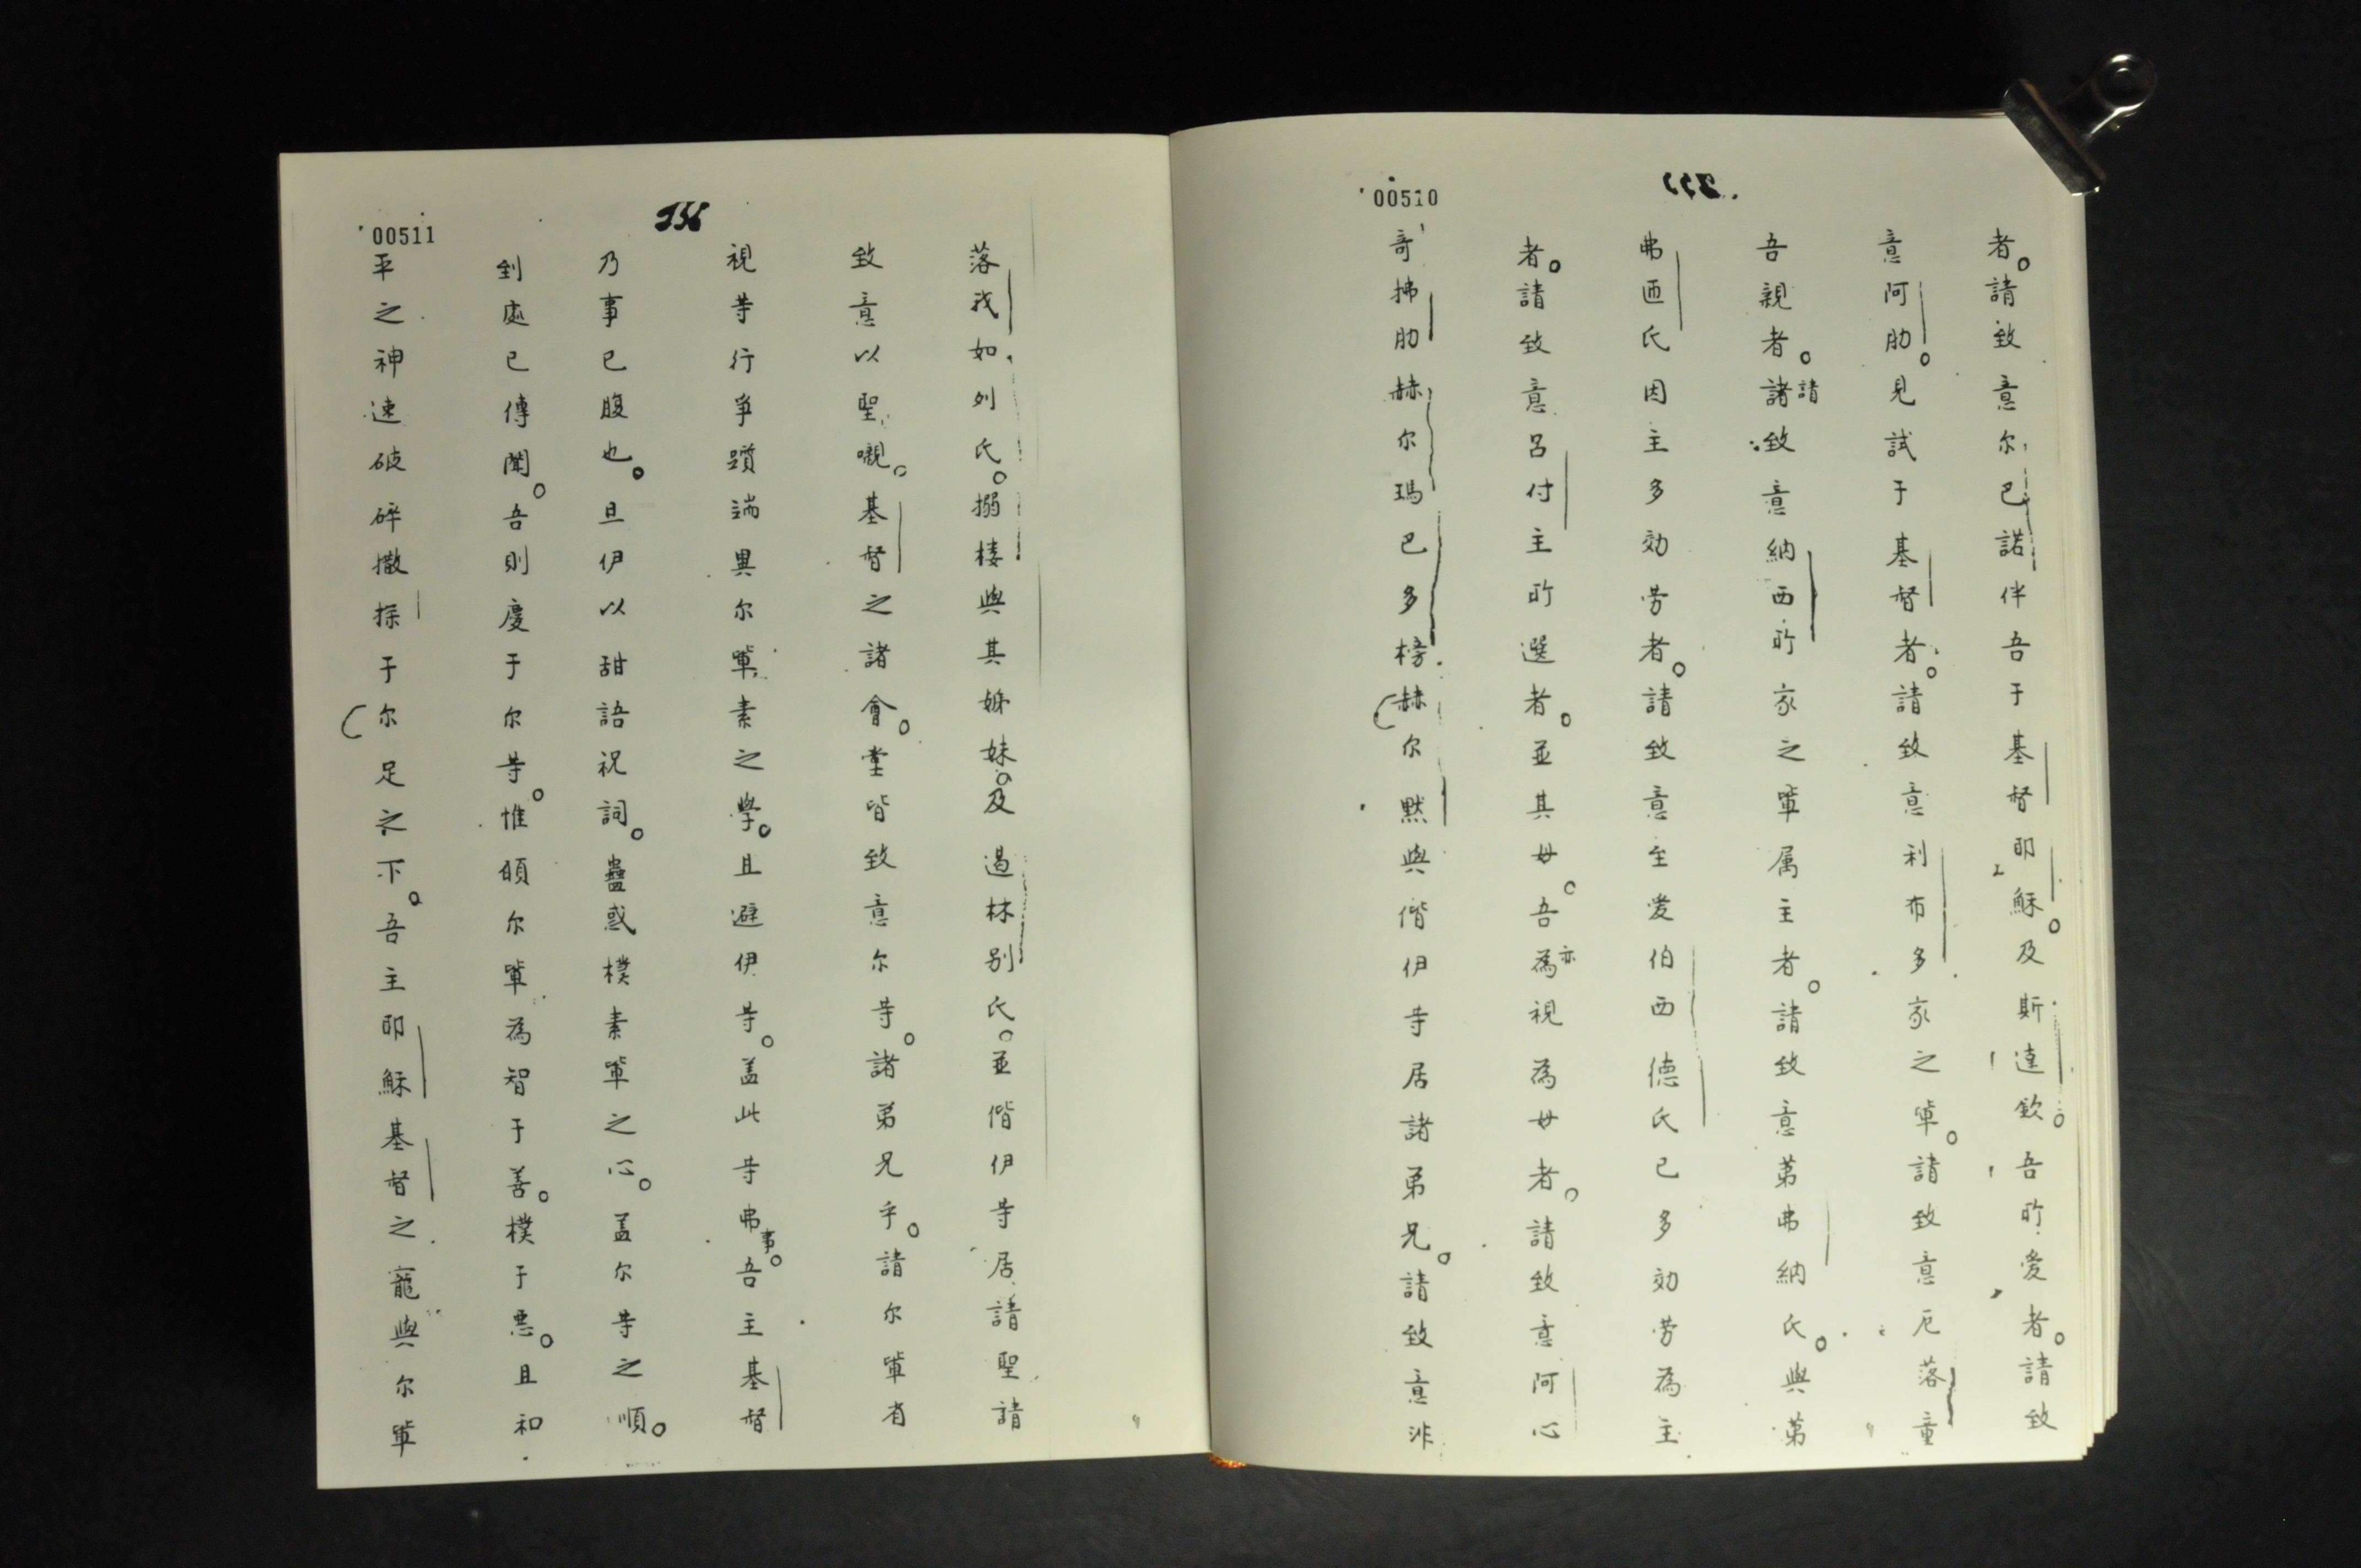 00510
者。請致意尔巴諾伴吾于基督耶穌。及斯達欽。吾所愛者。請致
意阿肋。見試于基督者。請致意利布多家之輩。請致意厄落童
吾親者。諸請致意納西所家之輩属主者。請致意苐弗納氏。與苐
弗洒氏因主多効劳者。請致意至爱伯西德氏已多効劳為主
者。請致意呂付主所選者。並其母。吾亦為視為母者。請致意阿心
哥拂肋赫尔瑪巴多榜赫尔默與偕伊等居諸弟兄。請致意非
00511
356
落我如列氏。搦楼與其姊妹。及過林别氏。並偕伊等居諸聖請
致意以聖嚫。基督之諸會堂皆致意尔等。諸弟兄乎。請尔輩省
視等行爭躓端異尔輩素之學。且避伊等。盖此等弗事。吾主基督
乃事已腹也。旦伊以甜語祝詞。蠱惑樸素輩之心。盖尔等之順。
到處已傳聞。吾則慶于尔等。惟頋尔輩為智于善。樸于悪。且和
平之神速破碎撒探于尔足之下。吾主耶穌基督之寵與尔輩